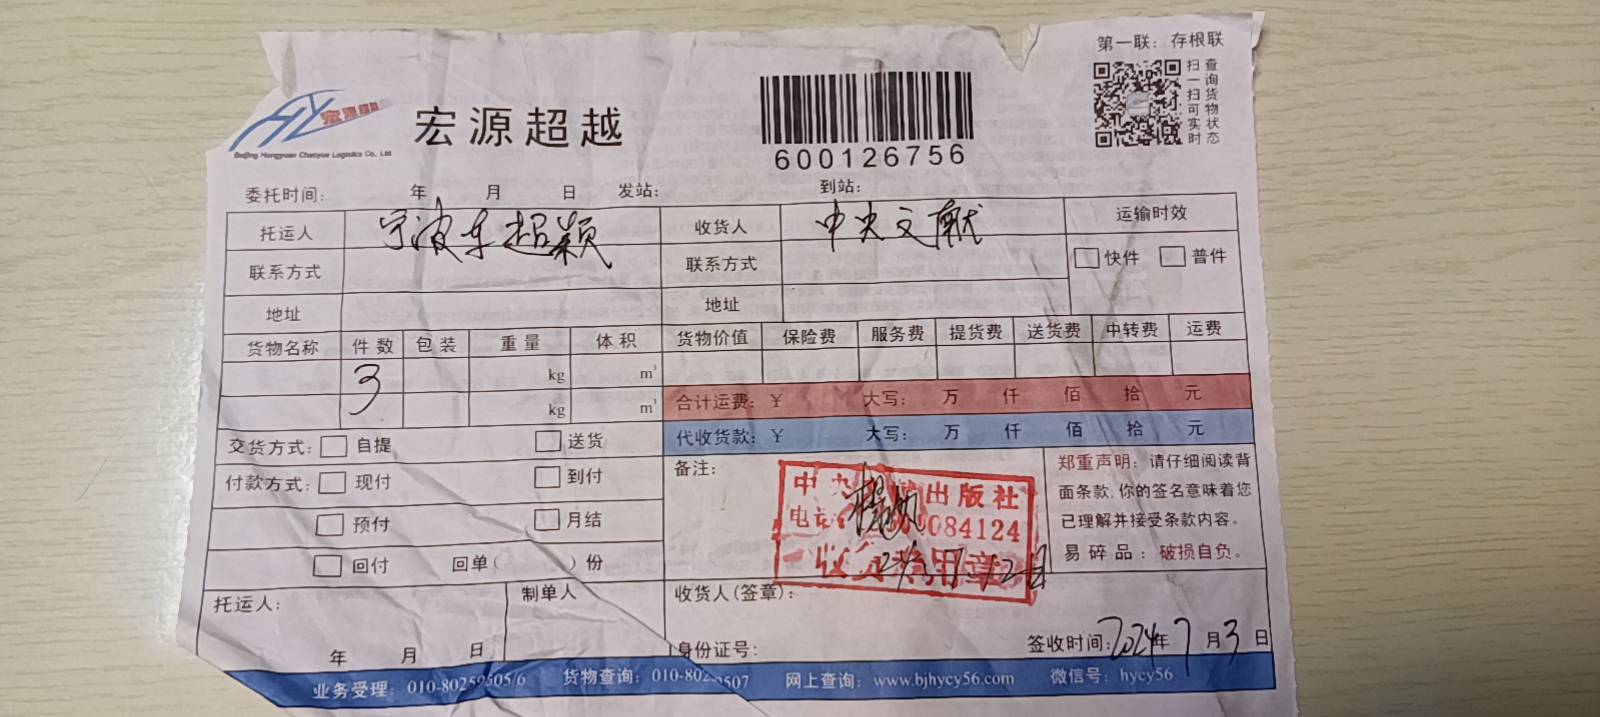 第一联：存根联
宏源超越
Beijing Hongyuan Chaoyue Logistics Co., Ltd.
宏源超越
600126756
扫一扫可实时
查询货物状态
委托时间： 年 月 日 发站： 到站：
托运人 宁波车超颖 收货人 中央文献 运输时效
联系方式 联系方式 快件 普件
地址 地址
货物名称 件数 包装 重量 体积 货物价值 保险费 服务费 提货费 送货费 中转费 运费
3 kg m³
kg m³ 合计运费：¥ 大写： 万 仟 佰 拾 元
交货方式： 自提 送货 代收货款：¥ 大写： 万 仟 佰 拾 元
付款方式： 现付 到付 备注：
预付 月结
回付 回单（ ）份
中央 出版社
电话 084124
收 专用章
郑重声明：请仔细阅读背
面条款，你的签名意味着您
已理解并接受条款内容。
易碎品：破损自负。
托运人： 制单人 收货人(签章)：
年 月 日 身份证号： 签收时间：2024年7月3日
业务受理：010-80259505/6 货物查询：010-802 507 网上查询：www.bjhycy56.com 微信号：hycy56